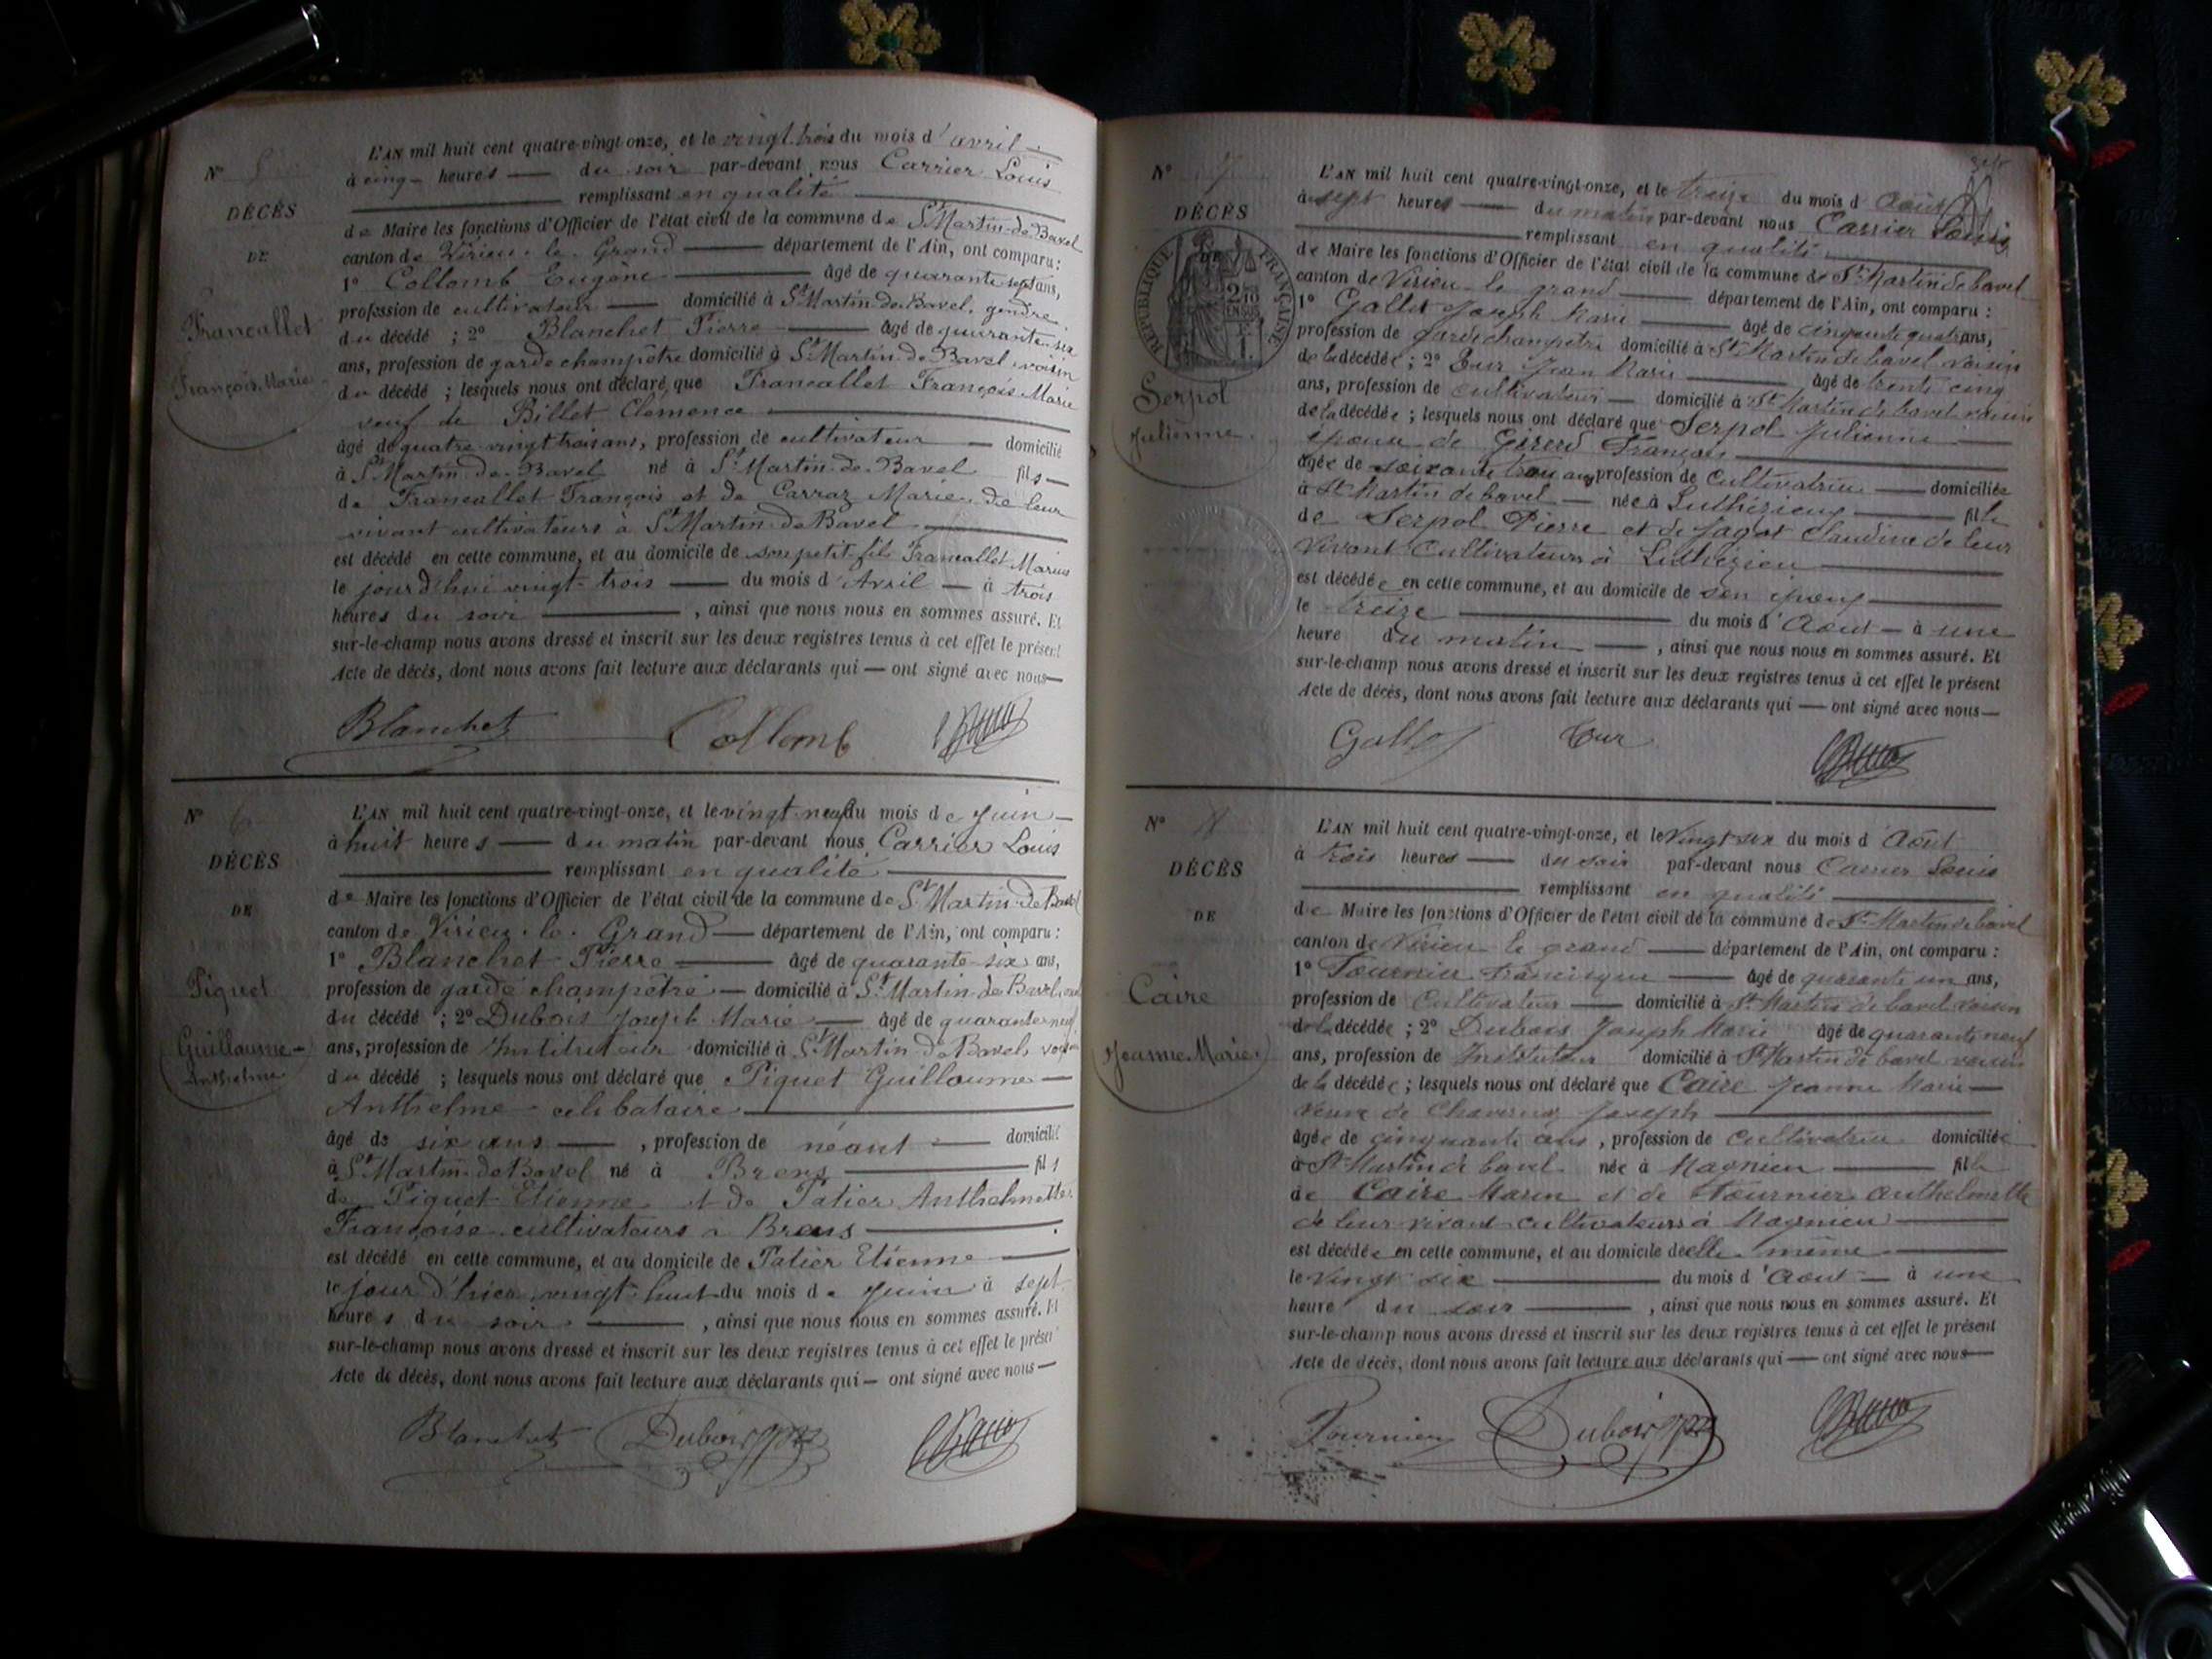 N° 5
DÉCÈS
DE
Francallet
François Marie
L'AN mil huit cent quatre-vingt-onze, et le vingt trois du mois d'avril
à cinq heures du soir par-devant nous Carrier Louis
remplissant en qualité
de Maire les fonctions d'Officier de l'état civil de la commune de St Martin-de-Bavel
canton de Virieu-le-Grand département de l'Ain, ont comparu :
1° Collomb Eugène âgé de quarante sept ans,
profession de cultivateur domicilié à St Martin-de-Bavel, gendre
du décédé ; 2° Blanchet Pierre âgé de quarante-six
ans, profession de garde champêtre domicilié à St Martin-de-Bavel voisin
du décédé ; lesquels nous ont déclaré que Francallet François Marie
veuf de Billet Clémence
âgé de quatre vingt trois ans, profession de cultivateur domicilié
à St Martin-de-Bavel né à St Martin-de-Bavel fils
de Francallet François et de Carraz Marie de leur
vivant cultivateurs à St Martin-de-Bavel
est décédé en cette commune, et au domicile de son petit-fils Francallet Marius
le jourd'hui vingt-trois du mois d'Avril à trois
heures du soir , ainsi que nous nous en sommes assuré. Et
sur-le-champ nous avons dressé et inscrit sur les deux registres tenus à cet effet le présent
Acte de décès, dont nous avons fait lecture aux déclarants qui — ont signé avec nous
Blanchet Collomb
N° 6
DÉCÈS
DE
Piquet
Guillaume-
Anthelme
L'AN mil huit cent quatre-vingt-onze, et le vingt neuf du mois de juin
à huit heures du matin par-devant nous Carrier Louis
remplissant en qualité
de Maire les fonctions d'Officier de l'état civil de la commune de St Martin-de-Bavel
canton de Virieu-le-Grand département de l'Ain, ont comparu :
1° Blanchet Pierre âgé de quarante-six ans,
profession de garde champêtre domicilié à St Martin-de-Bavel
du décédé ; 2° Dubois Joseph Marie âgé de quarante neuf
ans, profession de Instituteur domicilié à St Martin-de-Bavel, voisin
du décédé ; lesquels nous ont déclaré que Piquet Guillaume
Anthelme célibataire
âgé de six ans , profession de néant domicilié
à St Martin-de-Bavel né à Brens fils
de Piquet Etienne et de Tatier Anthelmette
Françoise cultivateurs à Brens
est décédé en cette commune, et au domicile de Tatier Etienne
le jour d'hier vingt-huit du mois de juin à sept
heures du soir , ainsi que nous nous en sommes assuré. Et
sur-le-champ nous avons dressé et inscrit sur les deux registres tenus à cet effet le présent
Acte de décès, dont nous avons fait lecture aux déclarants qui — ont signé avec nous
Blanchet Dubois
N° 7
DÉCÈS
DE
RÉPUBLIQUE FRANÇAISE
Serpol
Julienne
L'AN mil huit cent quatre-vingt-onze, et le treize du mois d'Août
à sept heures du matin par-devant nous Carrier Louis
remplissant en qualité
de Maire les fonctions d'Officier de l'état civil de la commune de St Martin de bavel
canton de Virieu-le grand département de l'Ain, ont comparu :
1° Gallet Joseph Marie âgé de cinquante quatre ans,
profession de garde champêtre domicilié à St Martin de bavel voisin
de la décédée ; 2° Tur Jean Marie âgé de trente cinq
ans, profession de cultivateur domicilié à St Martin de bavel voisin
de la décédée ; lesquels nous ont déclaré que Serpol Julienne
épouse de Girerd François
âgée de soixante trois ans profession de cultivatrice domiciliée
à St Martin de bavel née à Luthézieu fille
de Serpol Pierre et de Jagot Claudine de leur
vivant cultivateurs à Luthézieu
est décédée en cette commune, et au domicile de son époux
le treize du mois d'Août à une
heure du matin , ainsi que nous nous en sommes assuré. Et
sur-le-champ nous avons dressé et inscrit sur les deux registres tenus à cet effet le présent
Acte de décès, dont nous avons fait lecture aux déclarants qui — ont signé avec nous
Gallet Tur
N° 8
DÉCÈS
DE
Caire
Jeanne Marie
L'AN mil huit cent quatre-vingt-onze, et le vingt six du mois d'Août
à trois heures du soir par-devant nous Carrier Louis
remplissant en qualité
de Maire les fonctions d'Officier de l'état civil de la commune de St Martin de bavel
canton de Virieu le grand département de l'Ain, ont comparu :
1° Fournier Francisque âgé de quarante un ans,
profession de Cultivateur domicilié à St Martin de bavel voisin
de la décédée ; 2° Dubois Joseph Marie âgé de quarante neuf
ans, profession de Instituteur domicilié à St Martin de bavel voisin
de la décédée ; lesquels nous ont déclaré que Caire Jeanne Marie
veuve de Joseph
âgée de cinquante ans , profession de cultivatrice domiciliée
à St Martin de bavel née à Magnieu fille
de Caire Marin et de Fournier Anthelmette
de leur vivant cultivateurs à Magnieu
est décédée en cette commune, et au domicile de elle même
le vingt six du mois d'Août à une
heure du soir , ainsi que nous nous en sommes assuré. Et
sur-le-champ nous avons dressé et inscrit sur les deux registres tenus à cet effet le présent
Acte de décès, dont nous avons fait lecture aux déclarants qui — ont signé avec nous
Fournier Dubois